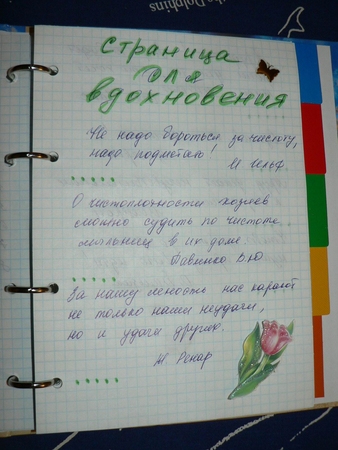 Dolphins
страница
для
вдохновения
Не надо бороться за чистоту,
надо подметать!
И. Ильф.
О чистоплотности хозяев
можно судить по чистоте
мыльниц в их доме
В.Ю
За нашу леность нас карают
не только наши неудачи,
но и удачи других.
Ж Ренар